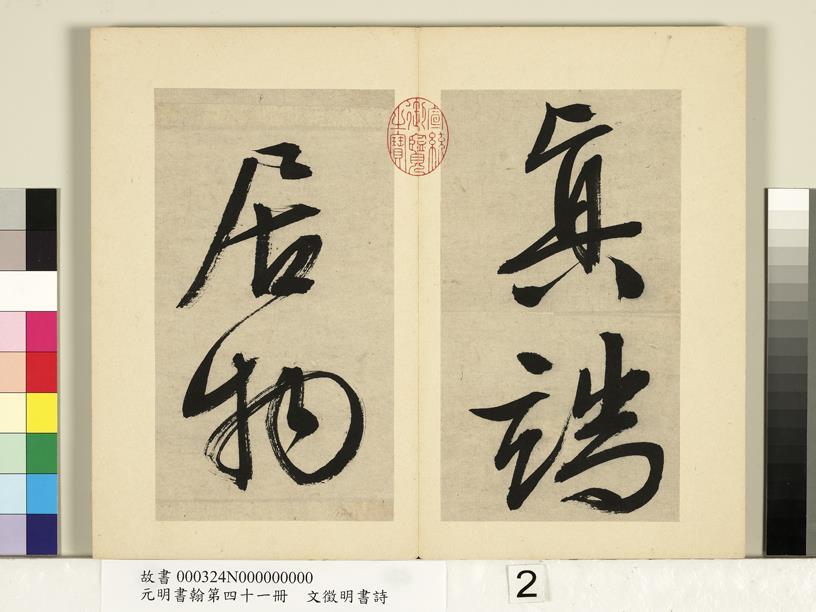 真端
居物
宣統
御覽
之寶
故書 000324N000000000
元明書翰第四十一冊 文徵明書詩
2